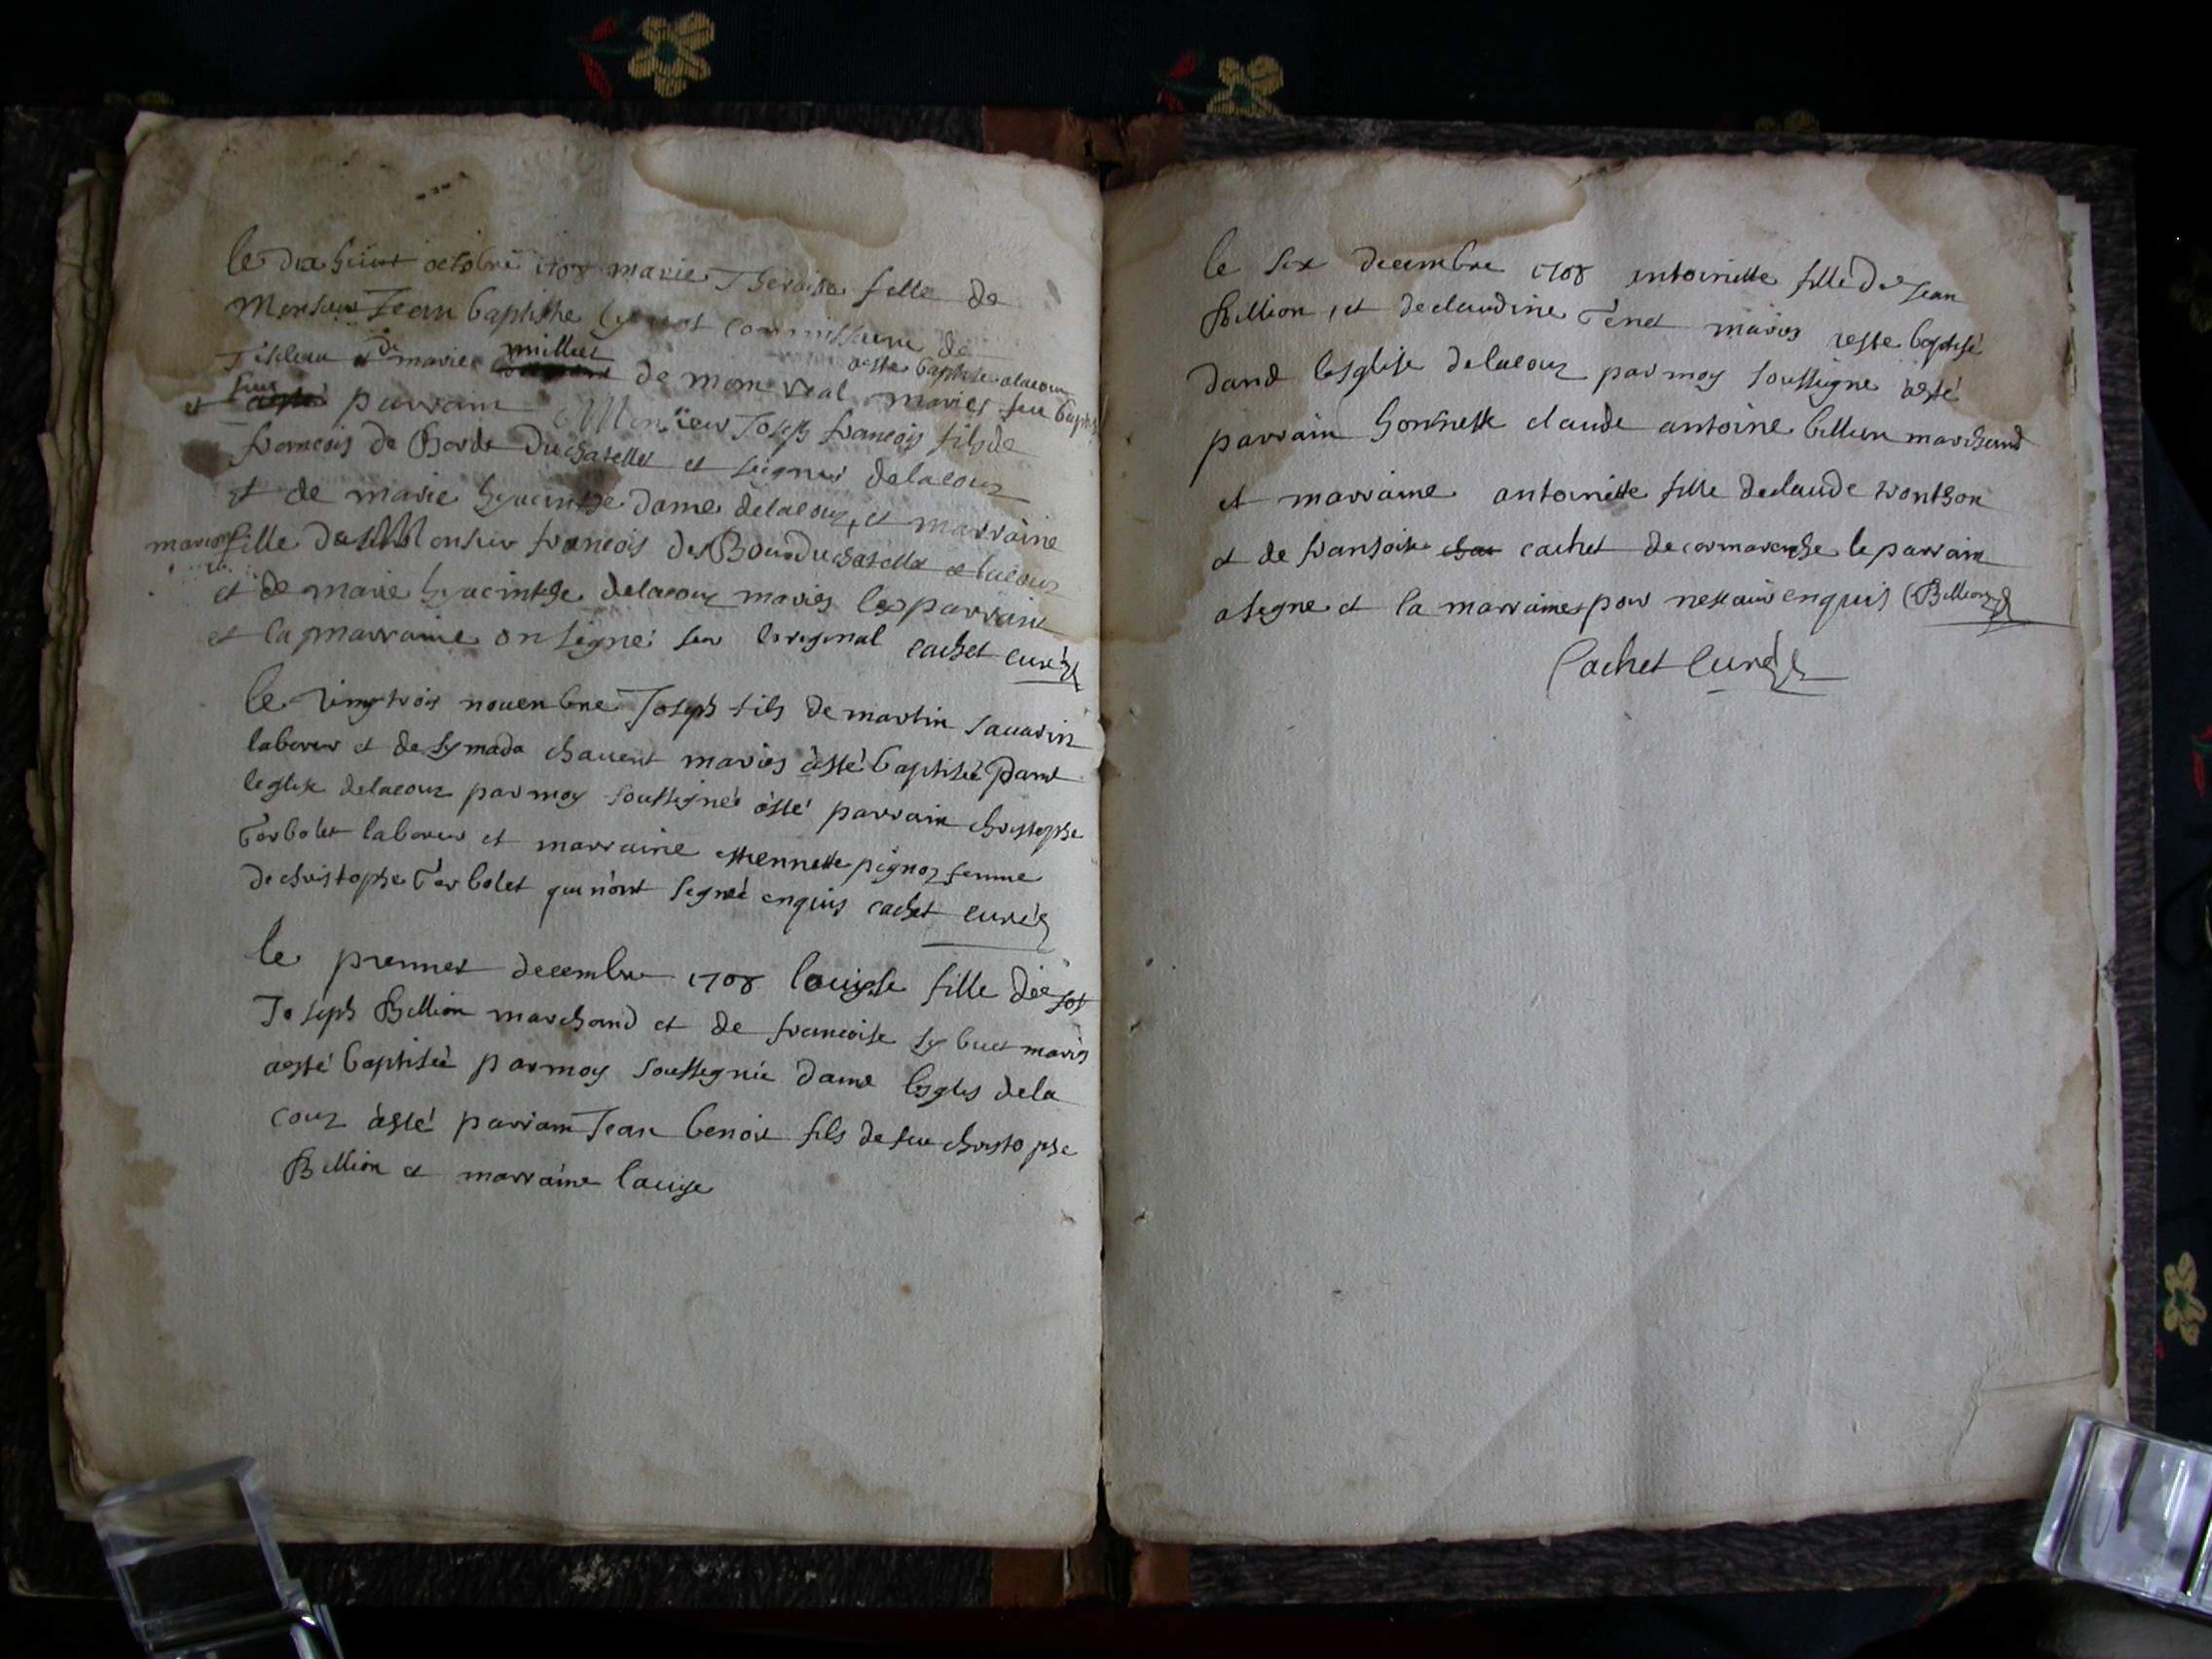 le dix huiut octobre 1708 marie Theraise fille de
Monsieur Jean baptiste commissaire de
marie millet de mom real maries aeste baptise alacour
et fuu parrain Monsieur Joseph francois fils de
francois de Borde Duchatellet et seigneur delacour
et de marie hyacinthe dame delacour et marraine
marion fille de Monsieur francois de Bourduchatellet
et de marie hyacinthe delacour maries les parrain
et la marraine on signe sur loriginal cachet curé
le vingtrois nouenbre Joseph fils de martin sauarin
laboreur et de symada chauent maries àsté baptiseé dant
leglise delacour par moy soussignés àsté parrain christophe
Terbolet laboreur et marraine ettiennette pignoz femme
de christophe Terbolet qui n'ont signeé enquis cachet curé
le premier decembre 1708 louisse fille dèe
Joseph Billion marchand et de francoise sybuet maries
aesté baptiseè par moy soussegniè dans lesglis dela
cour àsté parriam Jean benois fils de feu christophe
Billion et marraine louise
le six decembre 1708 entoinette fille de Jean
Billion, et declaudine Tenet maries aeste baptisé
dans lesglise delacour par moy soussigne àesté
parrain honneste claude antoine billion marchand
et marraine antoinette fille declaude trontson
et de fransoise cachet de cormaranche le parrain
a signe et la marraine pour enquis Billion
Cachet Curé